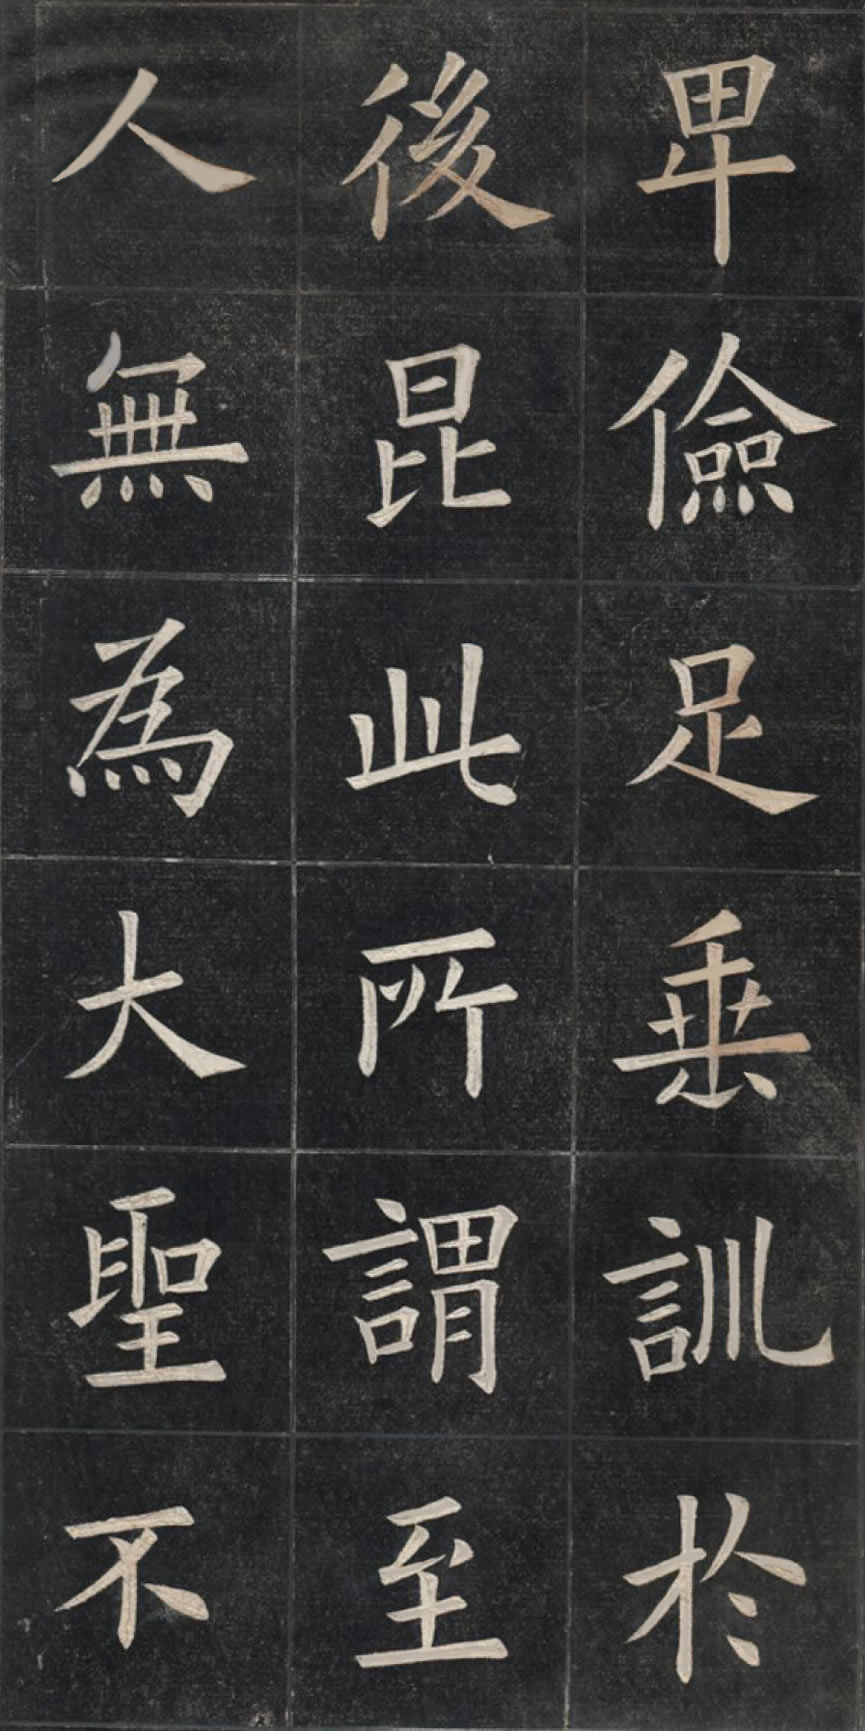 卑儉足垂訓於
後昆此所謂至
人無為大聖不